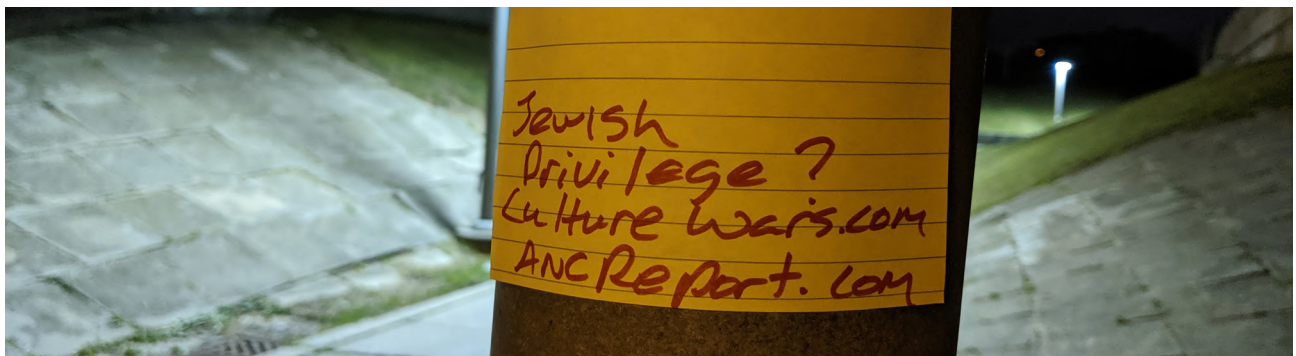 Jewish
Privilege?
Culture Wars.com
ANCReport.com